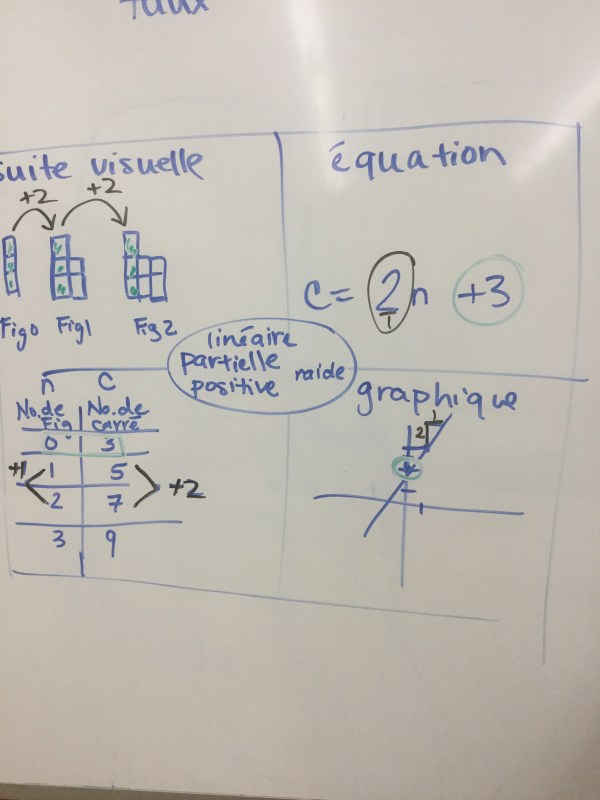 taux
suite visuelle
+2 +2
Fig0 Fig1 Fig2
équation
C= 2n +3
1
linéaire
partielle
positive raide
n C
No.de No.de
Fig carré
0 3
+1 1 5
2 7 +2
3 9
graphique
1
2